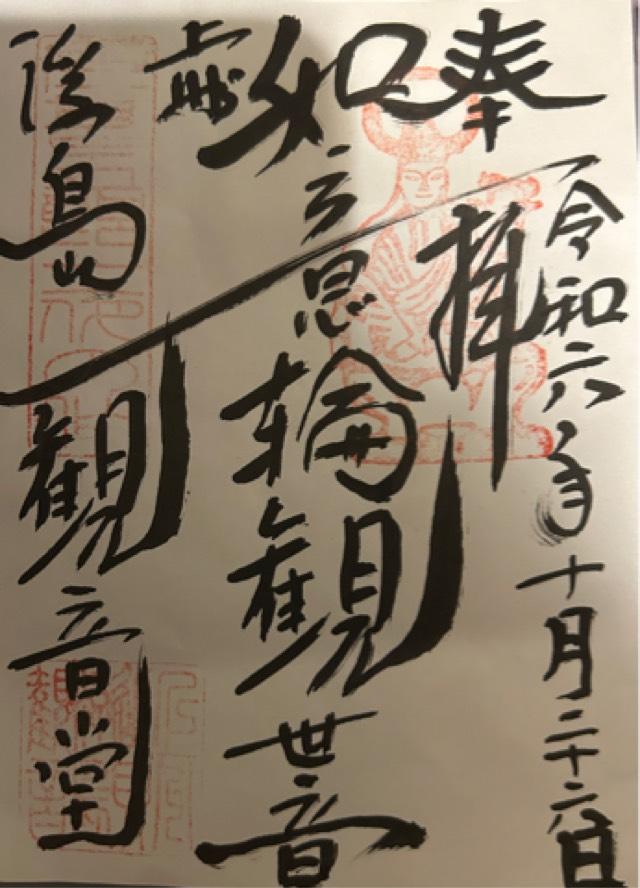 奉拝
令和六年十月二十六日
如意輪観世音
浮島
観音堂